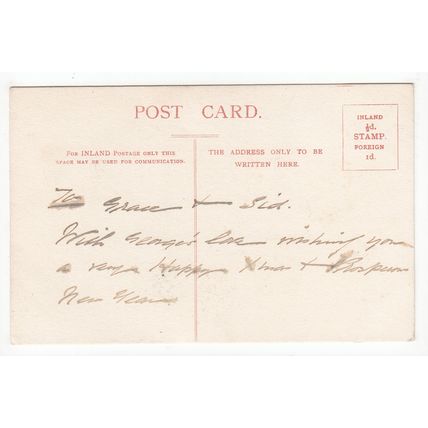 POST CARD.
FOR INLAND POSTAGE ONLY THIS
SPACE MAY BE USED FOR COMMUNICATION.
THE ADDRESS ONLY TO BE
WRITTEN HERE.
INLAND
½d.
STAMP.
FOREIGN
1d.
To Grace & Sid.
With George's love wishing you
a very Happy Xmas & Prosperous
New Year